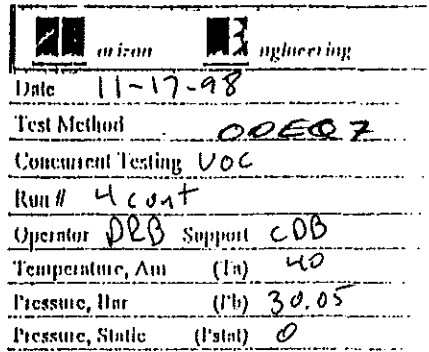 orizon ngineering
Date 11-17-98
Test Method ODEQ 7
Concurrent Testing VOC
Run # 4 cont
Operator DRB Support CDB
Temperature, Am (Ta) 40
Pressure, Bar (Pb) 30.05
Pressure, Static (Pstat) 0